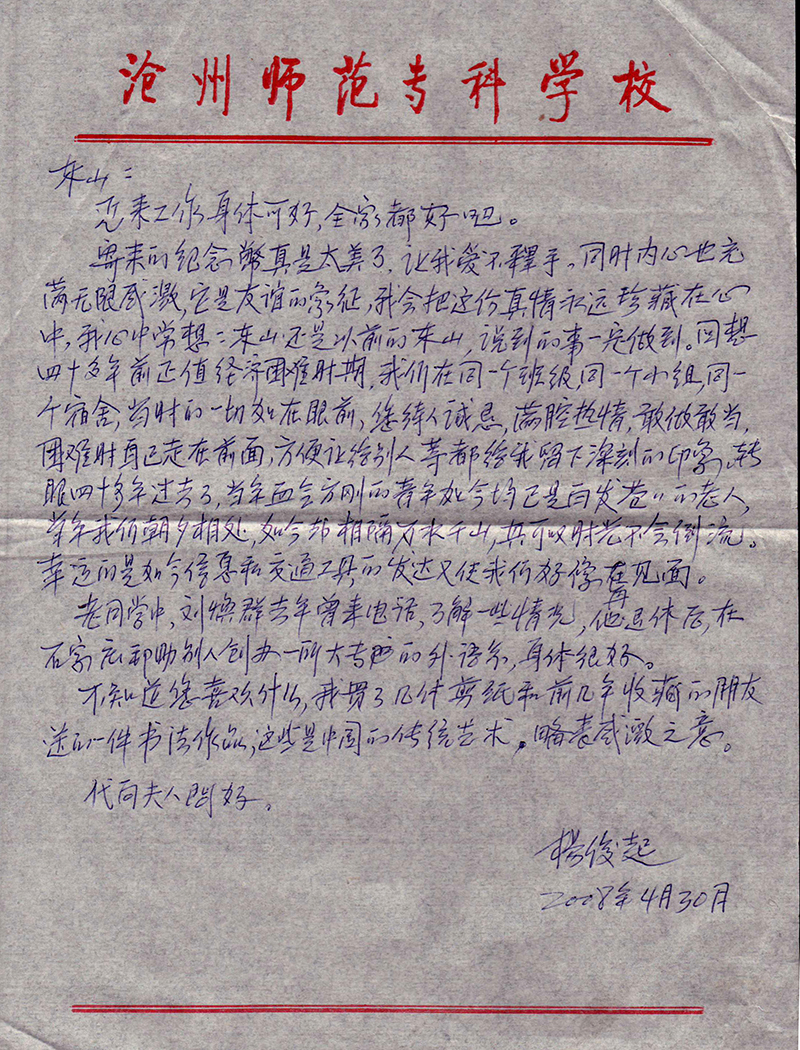 沧州师范专科学校
东山：
近来工作身体可好，全家都好吧。
寄来的纪念幣真是太美了，让我爱不釋手。同时内心也充
满无限感激，它是友谊的象征，我会把这份真情永远珍藏在心
中，我心中常想：东山还是以前的东山，说到的事一定做到。回想
四十多年前正值经济困难时期，我们在同一个班级，同一个小组，同一
个宿舍，当时的一切如在眼前，您待人诚恳，满腔热情，敢做敢当，
困难时自己走在前面，方便让给别人等都给我留下深刻的印象，转
眼四十多年过去了，当年血气方刚的青年如今均已是白发苍〃的老人，
当年我们朝夕相处，如今却相隔万水千山，只可以时光不会倒流。
幸运的是如今信息和交通工具的发达又使我们好像在见面。
再
老同学中，刘焕群去年曾来电话，了解一些情况，他退休后，在
石家庄帮助别人创办一所大专的外语系，身体很好。
不知道您喜欢什么，我買了几件剪纸和前几年收藏的朋友
送的一件书法作品，这些是中国的传统艺术，略表感激之意。
代向夫人問好，
楊俊起
2008年4月30日